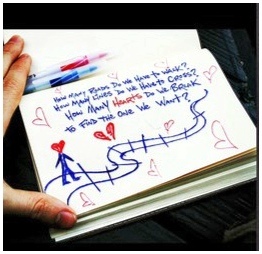 How Many Roads Do We Have to Walk?
How Many Lines Do We Have to Cross?
How Many Hearts Do We Break
to Find the One We Want?